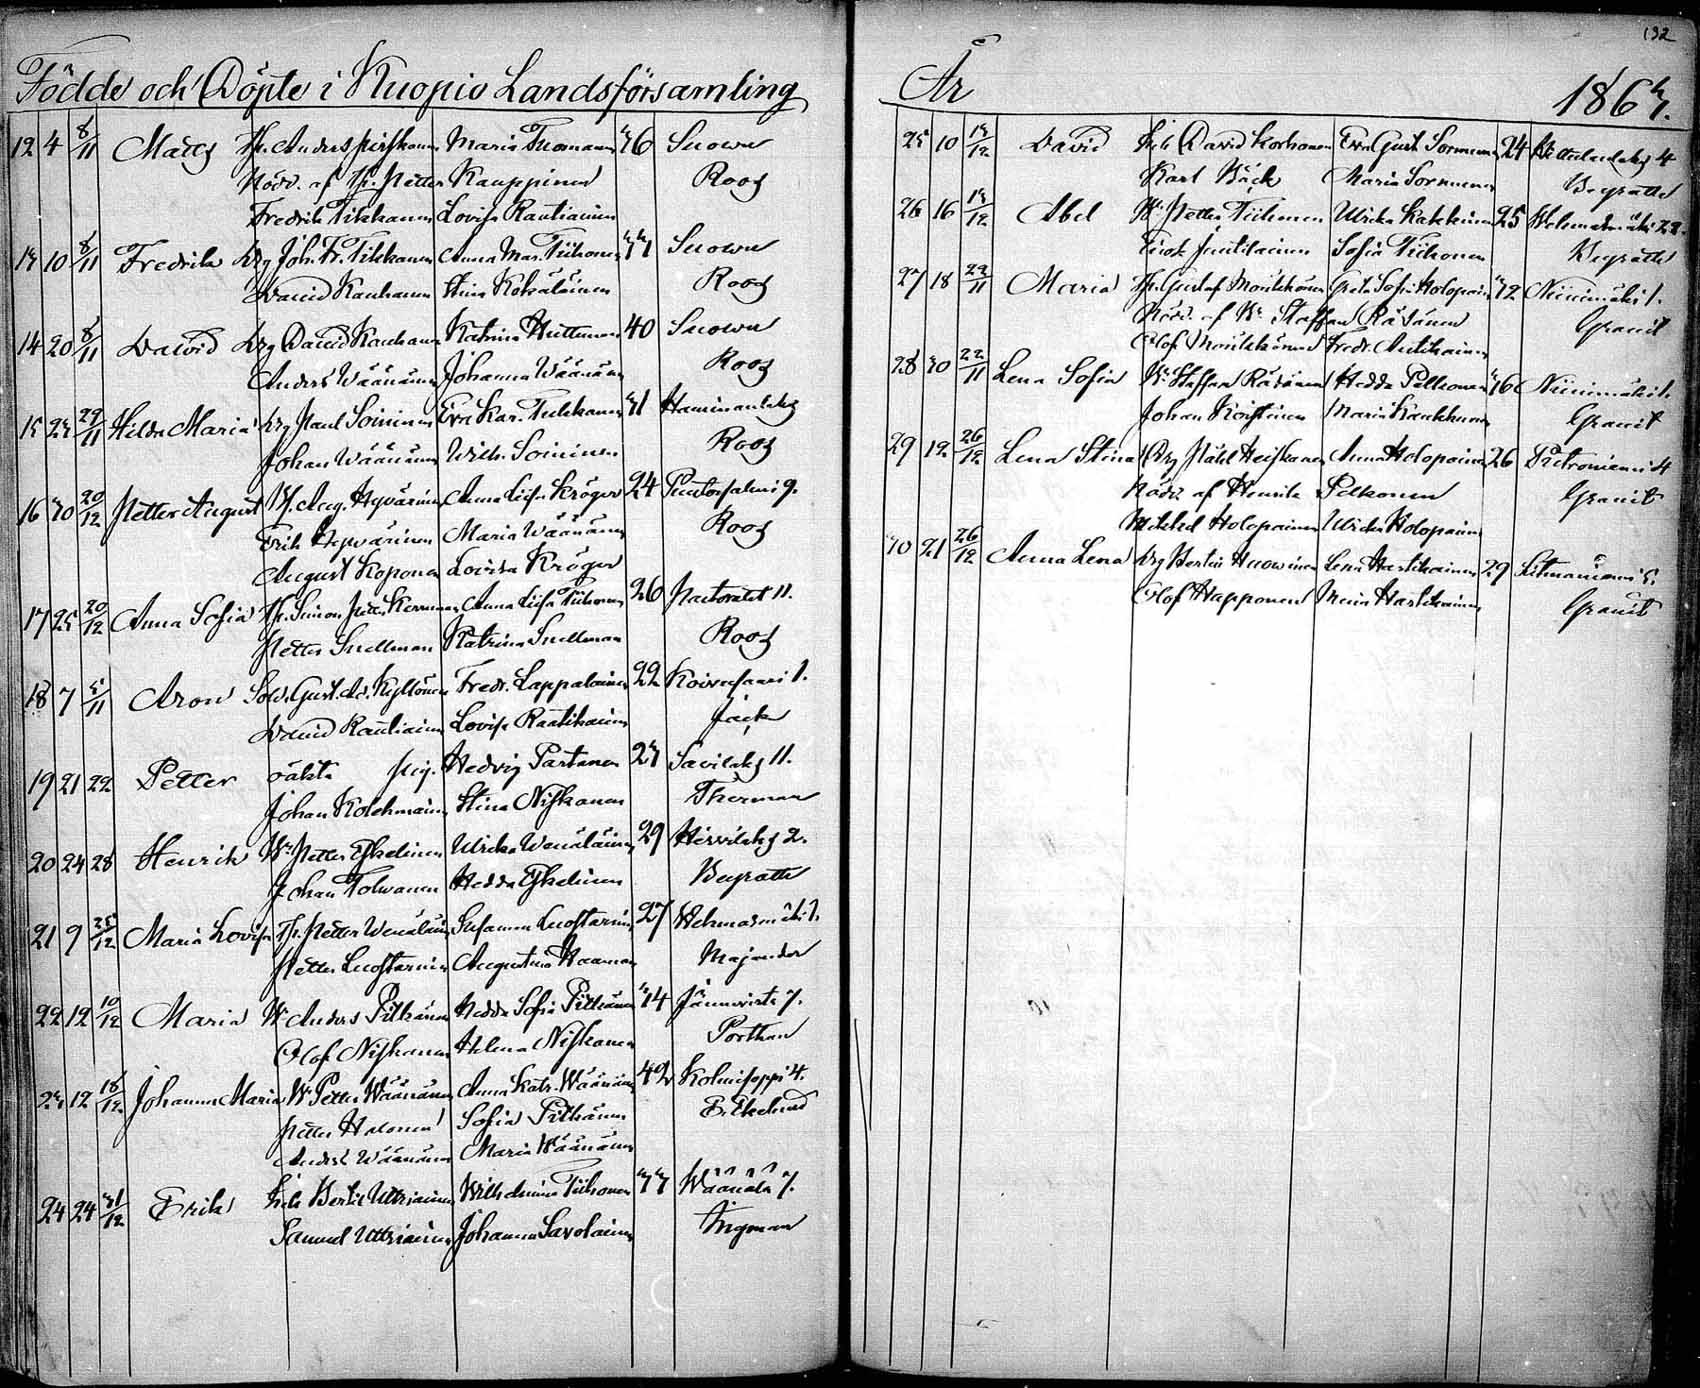 Födde och Döpte i Kuopio Landsförsamling
12 4 8/11 Matts Hp. Anders Maria Tuomainen 36 Suowu
Nödd. af Hr. Petter Kauppinen Roos
Fredrik Tikkanen Lovisa Rautiainen
13 10 8/11 Fredrik Drg Joh. Fr. Tikkanen Anna Mar. Tiihonen 33 Suowu
David Kauhanen Stina Kokäläinen Roos
14 20 8/11 Dawid Drg David Kauhanen Katrina Huttunen 40 Suowu
Anders Wäänänen Johanna Wäänänen Roos
15 23 29/11 Hilda Maria Drg Paul Soininen Eva Kar. Tikkanen 31 Haminanlaks
Johan Wäänänen Wilh. Soininen Roos
16 30 20/12 Petter August Bf. Aug. Hyvärinen Anna Lisa Kröger 24 9.
Erik Hywärinen Maria Wäänänen Roos
August Koponen Lovisa Kröger
17 25 20/12 Anna Sofia Hp. Simon Anna Lisa Tiihonen 26 Pastoratet 11.
Petter Snellman Katrina Snellman Roos
18 7 5/11 Aron Sold. Gust. Ad. Kyllönen Fredr. Lappalainen 22 Koivusaari 1.
David Rautiainen Lovisa Raatikainen Jack
19 21 22 Petter oäkta pig. Hedvig Partanen 23 Savilaks 11.
Johan Kolehmainen Stina Niskanen Therman
20 24 28 Henrik Bd Petter Eskelinen Ulrika Wenäläinen 29 Hirvilaks 2.
Johan Tolwanen Hedda Eskelinen Beyrath
21 9 25/12 Maria Lovisa Hp. Petter Wenäläinen Susanna Luostarinen 27 Wehmasmäki 1.
Petter Luostarinen Augustina Haaman Majander
22 12 10/12 Maria Bd Anders Pitkänen Hedda Sofia Pitkänen 34 Jännevirta 7.
Olof Niskanen Helena Niskanen Porthan
23 12 18/12 Johanna Maria Bd Petter Wäänänen Anna Katr. Wäänänen 42 Kolmisoppi 4.
Petter Halonen Sofia Pitkänen E. Ekelund
Anders Wäänänen Maria Wäänänen
24 24 31/12 Erik Inh Bertil Uttriainen Wilhelmina Tiihonen 33 Wäänälä 7.
Samuel Uttriainen Johanna Savolainen Ingman
132
År 1863.
25 10 13/12 David Inh David Korhonen Eva Gust. Sormunen 24 4
Karl Bäck Maria Sormunen Beyrath
26 16 13/12 Abel Bd Petter Tiihonen Ulrika Kakkinen 25 Wehmasmäki 22.
Enok Juutilainen Sofia Tiihonen Beyrath
27 18 22/11 Maria Hp. Gustaf Mönkkönen Greta Sofia Holopainen 32 Niinimäki 1.
Nödd. af Bd Staffan Räsänen Granit
Olof Mönkkönen Fredr. Antikainen
28 30 22/11 Lena Sofia Bd Staffan Räsänen Hedda Pelkonen 36 Niinimäki 1.
Johan Koistinen Maria Kaukkonen Granit
29 12 26/12 Lena Stina Drg Påhl Heiskanen Anna Holopainen 26 Petroniemi 4
Nödd af Henrik Pelkonen Granit
Mikkel Holopainen Ulrika Holopainen
30 21 26/12 Anna Lena Drg Bertil Huowinen Lena Hartikainen 29 Litmaniemi 5.
Olof Happonen Maria Hartikainen Granit